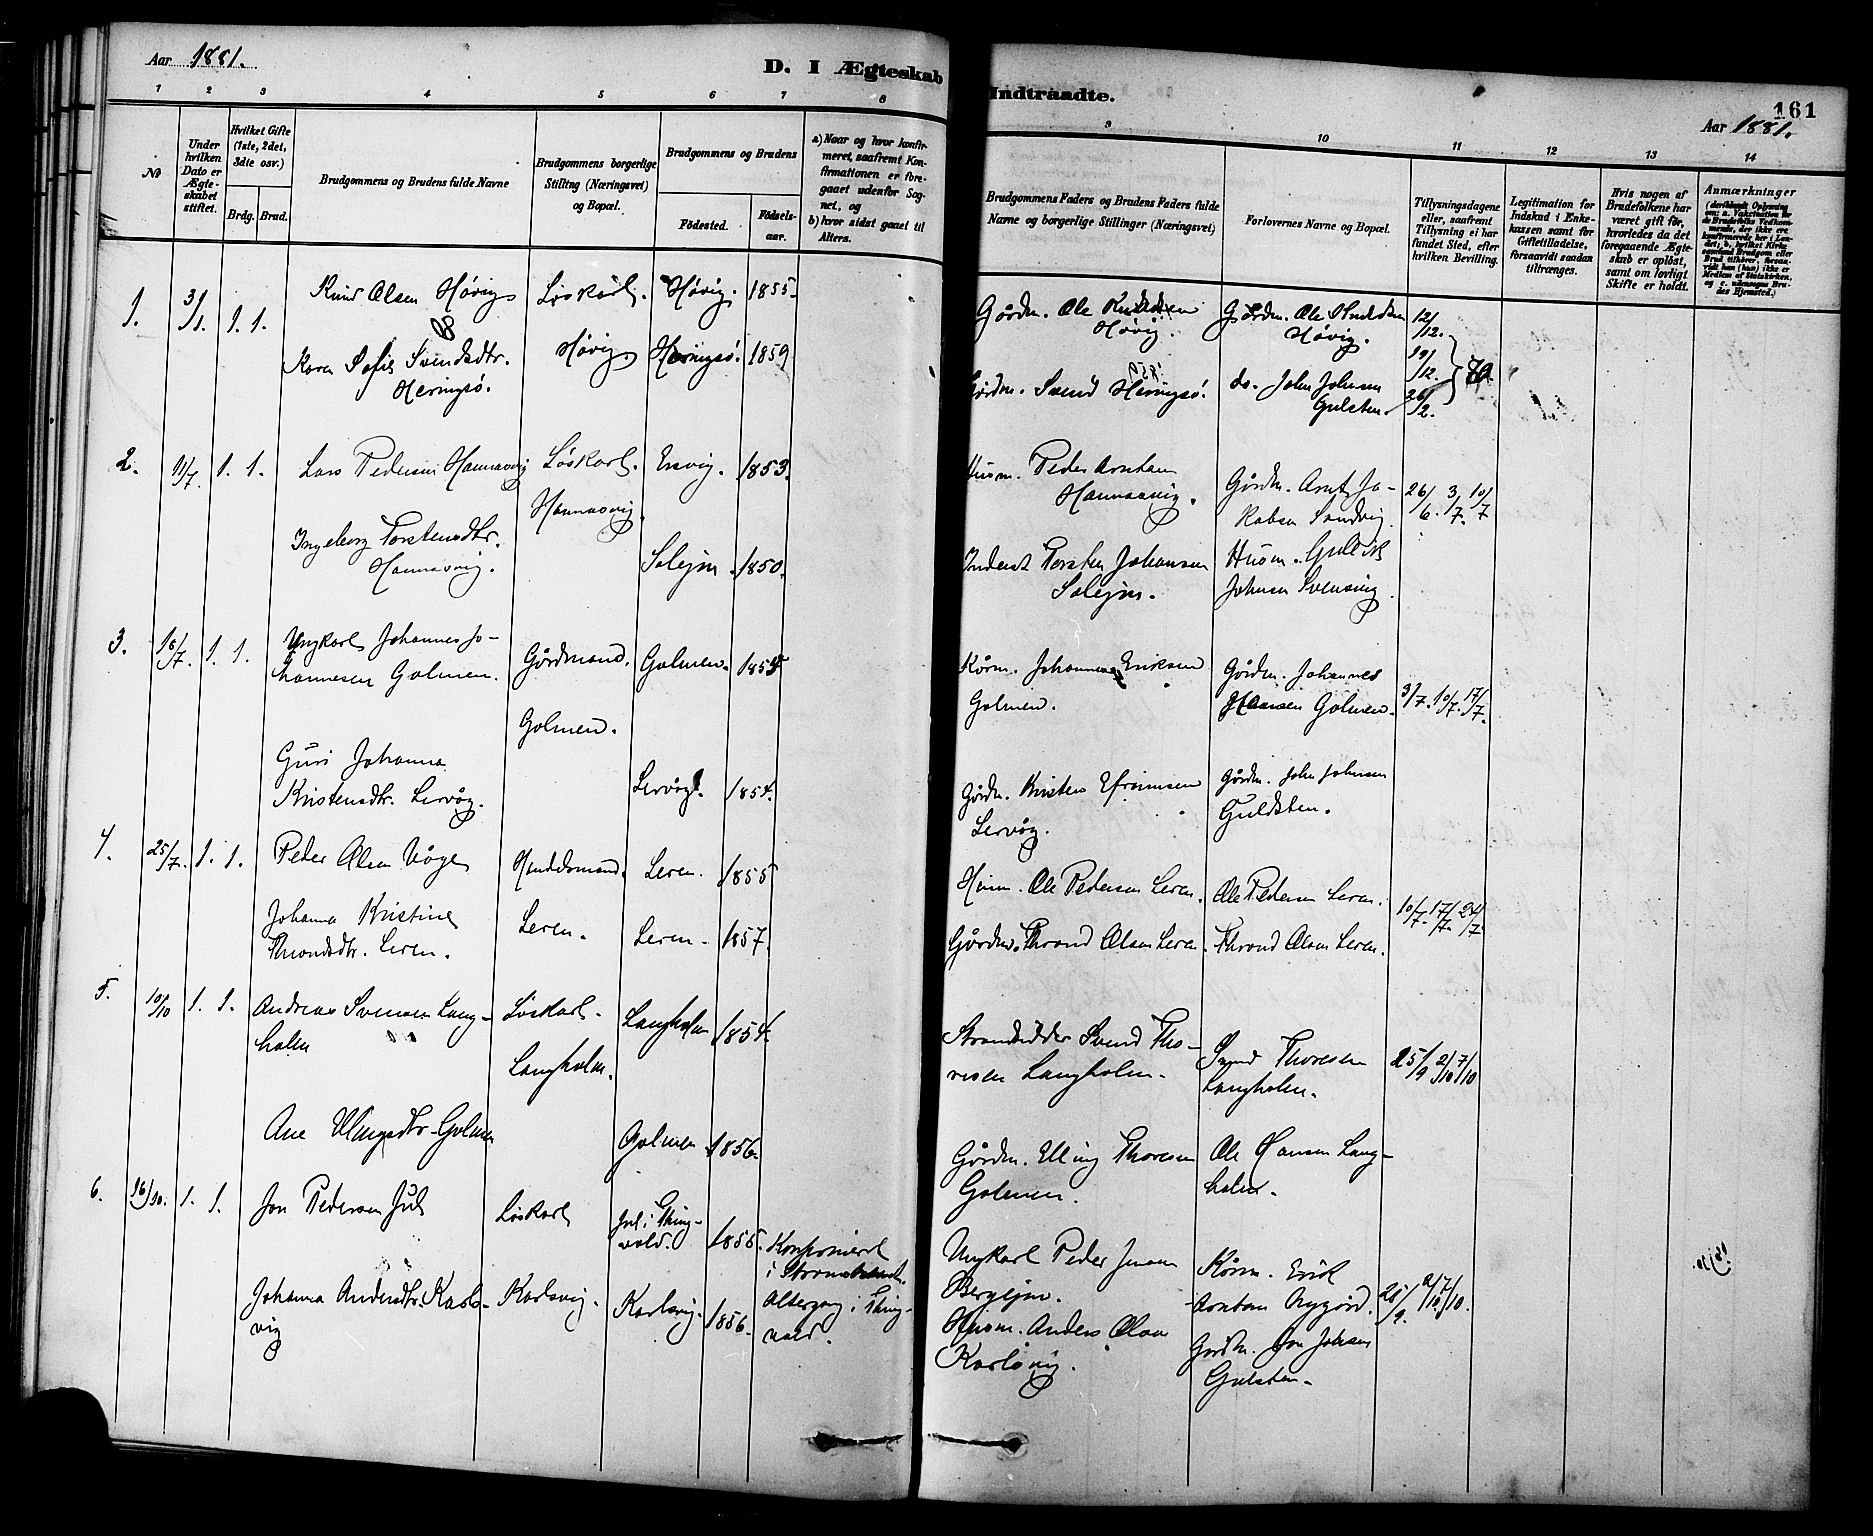 Aar 1881.
D. I Ægteskab Indtraadte.
161
Aar 1881.
1 2 3 4 5 6 7 8 9 10 11 12 13 14
No
Under hvilken Dato er Ægteskabet stiftet.
Hvilket Gifte (1ste, 2det, 3die osv.)
Brdg. Brud.
Brudgommens og Brudens fulde Navne
Brudgommens borgerlige Stilling (Næringsvei) og Bopæl.
Brudgommens og Brudens
Födested.
Födselsaar.
a) Naar og hvor konfirmeret, saafremt Konfirmationen er foregaaet udenfor Sognet, og
b) hvor sidst gaaet til Alters.
Brudgommens Faders og Brudens Faders fulde Navne og borgerlige Stillinger (Næringsvei)
Forlovernes Navne og Bopæl.
Tillysningsdagene eller, saafremt Tillysning ei har fundet Sted, efter hvilken Bevilling.
Legitimation for Indskud i Enkekassen samt for Giftetilladelse, forsaavidt saadan tiltrænges.
Hvis nogen af Brudefolkene har været gift för, hvorledes da det foregaaende Ægteskab er oplöst, samt om lovligt Skifte er holdt.
Anmærkninger
1. 3/1. 1. 1.
Knud Olsen Høvig
Løskarl. Høvig. 1855.
Gårdm. Ole Knudsen
Høvig.
Gårdm. Ole Knudsen
Høvig.
12/12.
19/12.
26/12.
og
Karen Sofie Svendsdtr.
Heringsø.
Høvig Heringsø. 1859
Gårdm. Svend Heringsø.
do. John Johnsen
Gulsten.
2. 11/7. 1. 1.
Lars Pedersen Hannasvig
Løskarl. Ersvig. 1853.
Hannasvig.
Husm. Peder Arntsen
Hannasvig.
Gårdm. Arnt Ja-
kobsen Sandvig.
26/6. 3/7. 10/7
Ingeborg Torstensdtr.
Hannasvig.
Solejm 1850.
Inderst Torsten Johansen
Solejm.
Husm.
Johnsen Svensvig
3. 18/7. 1. 1.
Ungkarl Johannes Jo-
hannesen Golmen.
Gårdmand. Golmen.
Golmen.
Kårm. Johannes Eriksen
Golmen.
Gårdm. Johannes
Hansen Golmen.
3/7. 10/7. 17/7.
Guri Johanna
Kristensdtr. Lervåg.
Lervåg. 1854.
Gårdm. Kristen Efraimsen
Lervåg.
Gårdm. John Johnsen
Guldsten.
4. 25/7. 1. 1.
Peder Olsen Våge
Leren. 1855
Leren.
Husm. Ole Pedersen Leren.
Ole Pedersen Leren.
10/7. 17/7. 24/7.
Johanna Kristine
Throndsdtr. Leren.
Leren. 1857.
Gårdm. Thrond Olsen Leren.
Thrond Olsen Leren.
5. 10/10 1. 1.
Andreas Svensen Lang-
holm
Løskarl. Langholm 1854.
Langholm.
Strandsidder Svend Tho-
resen Langholm.
Svend Thoresen
Langholm.
25/9 2/10 7/10
Ane Ellingsdtr. Golmen
Golmen 1856.
Gårdm. Elling Thoresen
Golmen.
Ole Hansen Lang-
holm.
6. 16/10. 1. 1.
Jon Pedersen Jul
Løskarl
Jul i Thing-
vold. 1855.
Konfirmeret
i
Altergang i Thing-
vold.
Ungkarl Peder Jonsen
Bergejm.
Kårm. Erik
Arntsen Nygård.
25/9. 2/10 7/10.
Johanna Andersdtr. Karls-
vig
Karlsvig. Karlsvig. 1856.
Husm. Anders Olsen
Karlsvig.
Gårdm. Jon Johnsen
Gulsten.